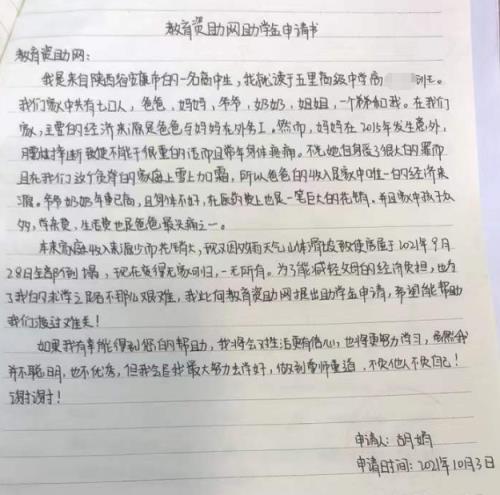 教育资助网助学金申请书
教育资助网：
我是来自陕西省安康市的一名高中生，我就读于五里高级中学高 班。
我们家中共有七口人，爸爸，妈妈，爷爷，奶奶，姐姐，一个妹妹和我。在我们
家，主要的经济来源是爸爸与妈妈在外务工。然而，妈妈在2015年发生意外，
腰椎摔断致使不能干很重的活而且常年身体疼痛。不光她自身受了很大的罪而
且在我们这个贫穷的家庭上雪上加霜，所以爸爸的收入是家中唯一的经济来
源。爷爷奶奶年事已高，且身体不好，在医药费上也是一笔巨大的花销。并且家中孩子众
多，学杂费，生活费也是爸爸最头痛之一。
本来家庭收入来源少而花销大，现又因为雨天气山体滑坡致使房屋于2021年9月
28日全部倒塌，现在变得无家可归，一无所有。为了能减轻父母的经济负担，也为
了我的求学之路不那么艰难，我此向教育资助网提出助学金申请，希望能帮助
我们渡过难关！
如果我有幸能得到您的帮助，我将会对生活更有信心，也将更努力学习，虽然我
并不聪明，也不优秀，但我会尽我最大努力去待好，做到尊师重道，不负他人不负自己！
谢谢！
申请人：胡娟
申请时间：2021年10月3日